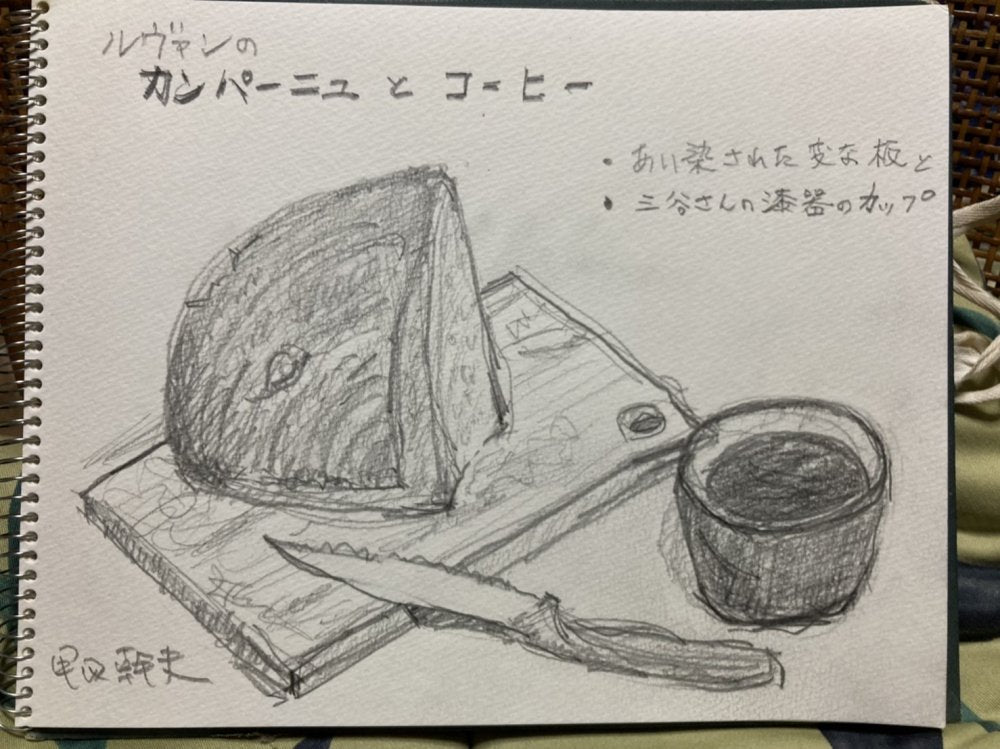 ルヴァンの
カンパーニュ と コーヒー
・あい染された変な板と
・三谷さんの漆器のカップ